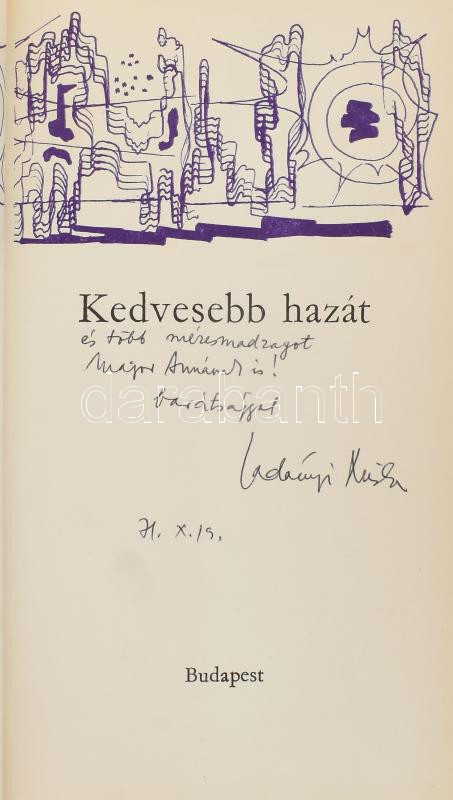 Kedvesebb hazát
és több mézesmadzagot
Major Annának is!
barátsággal
darabanth
Ladányi Misi
71. X. 19.
Budapest